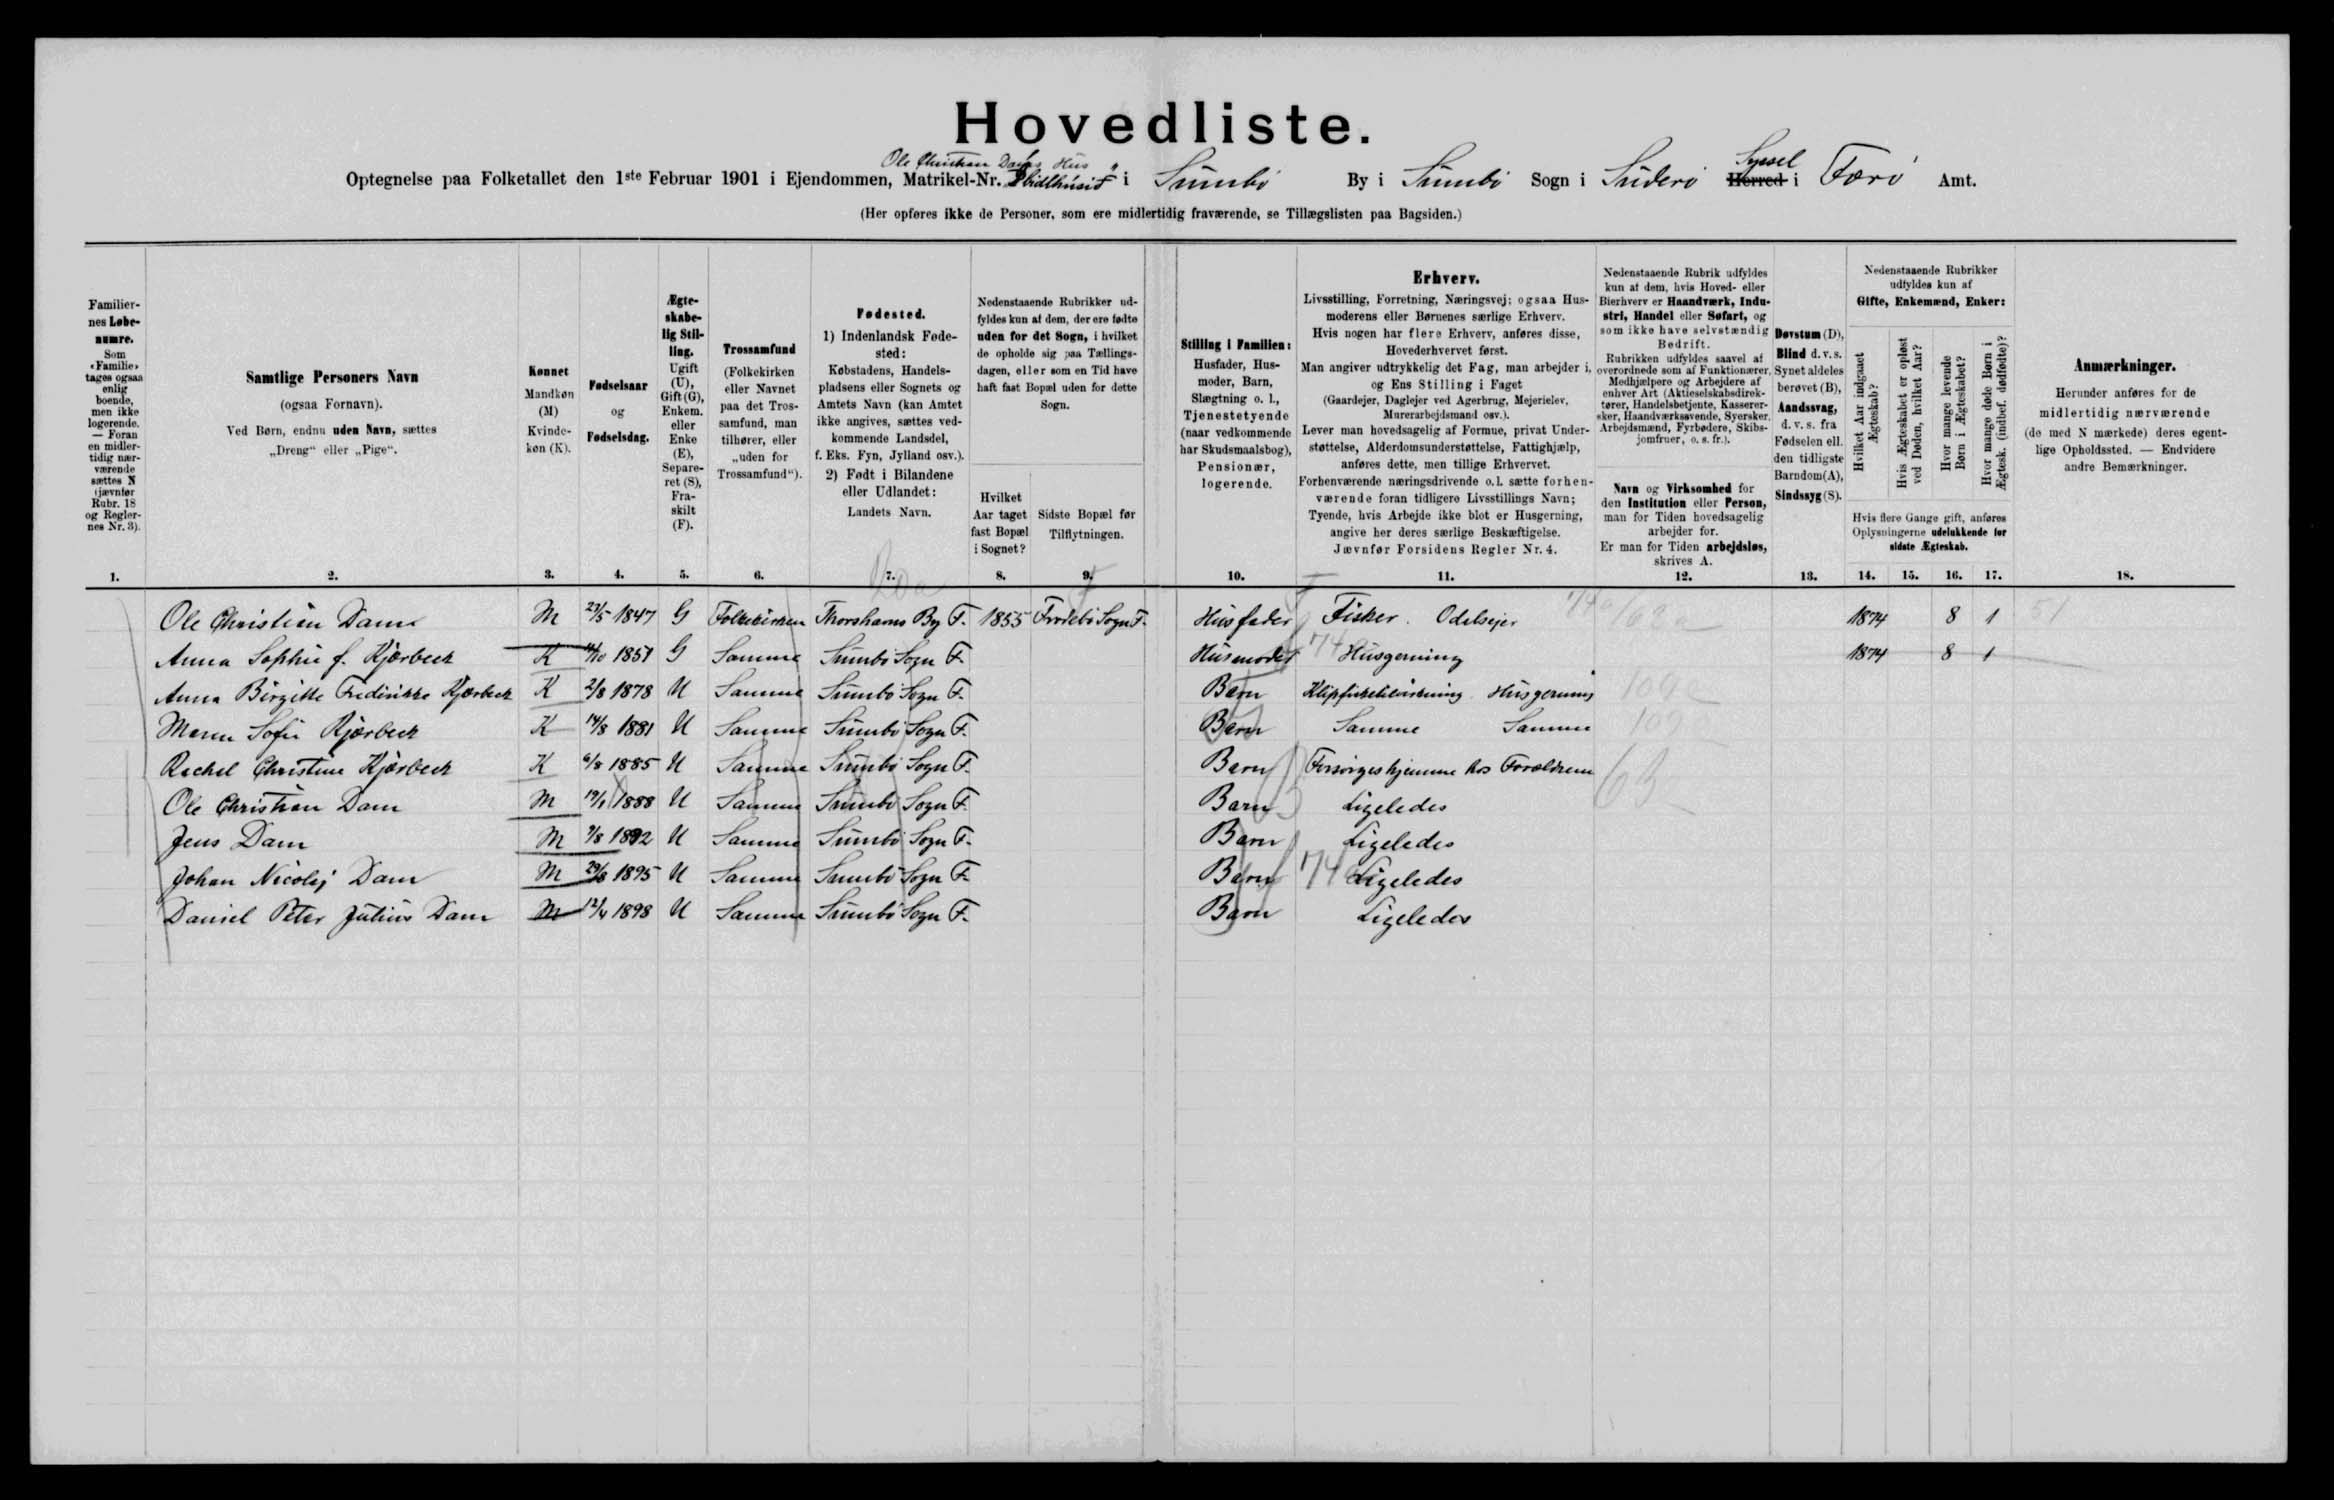 Hovedliste.
Ole Christian Dams Hus
Optegnelse paa Folketallet den 1ste Februar 1901 i Ejendommen, Matrikel-Nr. i Sumbø By i Sumbø Sogn i Suderø Herred Syssel i Færø Amt.
(Her opføres ikke de Personer, som ere midlertidig fraværende, se Tillægslisten paa Bagsiden.)
Familiernes Løbenumre.
Som «Familie» tages ogsaa enlig boende, men ikke logerende. — Foran en midlertidig nærværende sættes N (jævnfør Rubr. 18 og Reglernes Nr. 3).
Samtlige Personers Navn
(ogsaa Fornavn).
Ved Børn, endnu uden Navn, sættes
„Dreng“ eller „Pige“.
Kønnet
Mandkøn (M) Kvindekøn (K).
Fødselsaar
og
Fødselsdag.
Ægteskabelig Stilling.
Ugift (U), Gift (G), Enkem. eller Enke (E), Separeret (S), Fraskilt (F).
Trossamfund
(Folkekirken eller Navnet paa det Trossamfund, man tilhører, eller „uden for Trossamfund“).
Fødested.
1) Indenlandsk Fødested:
Købstadens, Handelspladsens eller Sognets og Amtets Navn (kan Amtet ikke angives, sættes vedkommende Landsdel, f. Eks. Fyn, Jylland osv.).
2) Født i Bilandene eller Udlandet:
Landets Navn.
Nedenstaaende Rubrikker udfyldes kun af dem, der ere fødte uden for det Sogn, i hvilket de opholde sig paa Tællingsdagen, eller som en Tid have haft fast Bopæl uden for dette Sogn.
Hvilket Aar taget fast Bopæl i Sognet?
Sidste Bopæl før Tilflytningen.
Stilling i Familien:
Husfader, Husmoder, Barn, Slægtning o. l., Tjenestetyende (naar vedkommende har Skudsmaalsbog), Pensionær, logerende.
Erhverv.
Livsstilling, Forretning, Næringsvej; ogsaa Husmoderens eller Børnenes særlige Erhverv.
Hvis nogen har flere Erhverv, anføres disse, Hovederhvervet først.
Man angiver udtrykkelig det Fag, man arbejder i, og Ens Stilling i Faget
(Gaardejer, Daglejer ved Agerbrug, Mejerielev, Murerarbejdsmand osv.).
Lever man hovedsagelig af Formue, privat Understøttelse, Alderdomsunderstøttelse, Fattighjælp, anføres dette, men tillige Erhvervet.
Forhenværende næringsdrivende o.l. sætte forhenværende foran tidligere Livsstillings Navn;
Tyende, hvis Arbejde ikke blot er Husgerning, angive her deres særlige Beskæftigelse.
Jævnfør Forsidens Regler Nr. 4.
Nedenstaaende Rubrik udfyldes kun af dem, hvis Hoved- eller Bierhverv er Haandværk, Industri, Handel eller Søfart, og som ikke have selvstændig Bedrift.
Rubrikken udfyldes saavel af overordnede som af Funktionærer, Medhjælpere og Arbejdere af enhver Art (Aktieselskabsdirektører, Handelsbetjente, Kasserersker, Haandværkssvende, Syersker, Arbejdsmænd, Fyrbødere, Skibsjomfruer, o. s. fr.).
Navn og Virksomhed for den Institution eller Person, man for Tiden hovedsagelig arbejder for.
Er man for Tiden arbejdsløs, skrives A.
Døvstum (D), Blind d. v. s. Synet aldeles berøvet (B), Aandssvag, d. v. s. fra Fødselen ell. den tidligste Barndom(A), Sindssyg (S).
Nedenstaaende Rubrikker udfyldes kun af
Gifte, Enkemænd, Enker:
Hvilket Aar indgaaet Ægteskab?
Hvis Ægteskabet er opløst ved Døden, hvilket Aar?
Hvor mange levende Børn i Ægteskabet?
Hvor mange døde Børn i Ægtesk. (indbef. dødfødte)?
Hvis flere Gange gift, anføres Oplysningerne udelukkende for sidste Ægteskab.
Anmærkninger.
Herunder anføres for de midlertidig nærværende (de med N mærkede) deres egentlige Opholdssted. — Endvidere andre Bemærkninger.
1. 2. 3. 4. 5. 6. 7. 8. 9. 10. 11. 12. 13. 14. 15. 16. 17. 18.
Ole Christian Dam M 23/5 1847 G Folkekirken Thorshavns By F. 1855 Frodebø Sogn F. Husfader Fisker. Odelsejer 1874 8 1 51
Anna Sophie f. Kjørbeck K 1851 G Samme Sumbø Sogn F. Husmoder Husgerning 1874 8 1
Anna Birgitte Fredirikke Kjørbeck K 2/8 1878 U Samme Sumbø Sogn F. Barn Klipfisketilvirkning Husgerning 109a
Maren Sofie Kjørbeck K 14/8 1881 U Samme Sumbø Sogn F. Barn Samme Samme
Rachel Christine Kjørbeck K 6/8 1885 U Samme Sumbø Sogn F. Barn Forsørges hjemme hos Forældrene
Ole Christian Dam M 19/1 1888 U Samme Sumbø Sogn F. Barn Ligeledes
Jens Dam M 9/8 1892 U Samme Sumbø Sogn F. Barn Ligeledes
Johan Nicolej Dam M 29/8 1895 U Samme Sumbø Sogn F. Barn Ligeledes
Daniel Peter Julius Dam M 12/4 1898 U Samme Sumbø Sogn F. Barn Ligeledes